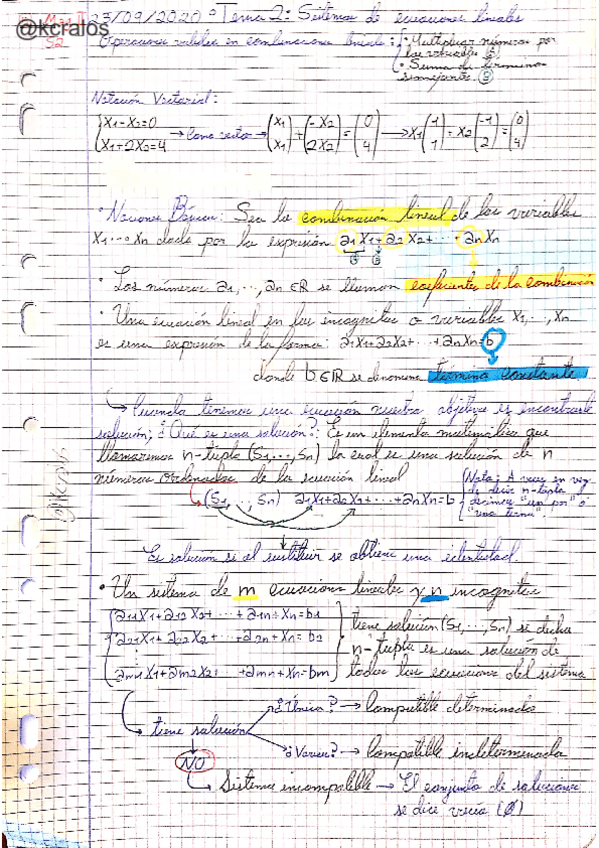 @kcralos
23/09/2020 • Tema 2: Sistemas de ecuaciones lineales
52
Operaciones validas en combinaciones lineales: • Multiplicar números por
las variables
• Suma de términos
semejantes.
Notación Vectorial:
{x1-x2=0
{x1+2x2=4 → Como vector → (x1 x1) + (-x2 2x2) = (0 4) → x1(1 1) + x2(-1 2) = (0 4)
• Nociones Básicas: Sea la combinación lineal de las variables
x1...xn dada por la expresión a1x1+a2x2+...anxn
• Los números a1,...,an ∈ℝ se llaman coeficientes de la combinación
• Una ecuación lineal en las incognitas o variables x1,..,xn
es una expresión de la forma: a1x1+a2x2+...+anxn=b
donde b∈ℝ se denomina término constante
↳ Cuando tenemos una ecuación nuestro objetivo es encontrarle
solución; ¿Qué es una solución?: Es un elemento matemático que
llamaremos n-tupla (s1,...,sn) la cual es una solución de n
números ordenados de la ecuación lineal
(s1,..,sn) a1x1+a2x2+...+anxn=b
(Nota: A veces en vez
de decir n-tupla
decimos "un par" o
"una terna".
Es solución si al sustituir se obtiene una identidad.
• Un sistema de m ecuaciones lineales y n incognitas
a11x1+a12x2+...+a1n+xn=b1
a21x1+a22x2+...+a2n+xn=b2
am1x1+am2x2: +amn+xn=bm
tiene solución (s1,...,sn) si dicha
n-tupla es una solución de
todas las ecuaciones del sistema
↳ tiene solución
¿Única? → Compatible determinado
¿Varias? → Compatible indeterminado
NO
↳ Sistema incompatible → El conjunto de soluciones
se dice vacío (∅)